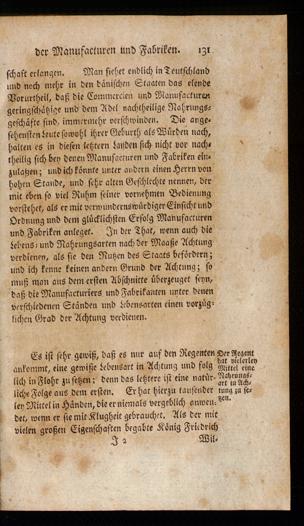 der Manufacturen und Fabriken. 131
schaft erlangen. Man siehet endlich in Teutschland
und noch mehr in den dänischen Staaten das elende
Vorurtheil, daß die Commercien und Manufacturen
geringschätzige und dem Adel nachtheilige Nahrungs-
geschäfte sind, immermehr verschwinden. Die ange-
sehensten Leute sowohl ihrer Geburth als Würden nach,
halten es in diesen letztern Landen sich nicht vor nach-
theilig sich bey denen Manufacturen und Fabriken ein-
zulassen; und ich könnte unter andern einen Herrn von
hohen Stande, und sehr alten Geschlechte nennen, der
mit eben so viel Ruhm seiner vornehmen Bedienung
vorstehet, als er mit verwundernswürdiger Einsicht und
Ordnung und dem glücklichsten Erfolg Manufacturen
und Fabriken anleget. In der That, wenn auch die
Lebens- und Nahrungsarten nach der Maaße Achtung
verdienen, als sie den Nutzen des Staats befördern;
und ich kenne keinen andern Grund der Achtung; so
muß man aus dem ersten Abschnitte überzeuget seyn,
daß die Manufacturiers und Fabrikanten unter denen
verschiedenen Ständen und Lebensarten einen vorzüg-
lichen Grad der Achtung verdienen.
Es ist sehr gewiß, daß es nur auf den Regenten
ankommt, eine gewisse Lebensart in Achtung und folg-
lich in Flohr zu setzen; denn das letztere ist eine natür-
liche Folge aus dem ersten. Er hat hierzu tausender-
ley Mittel in Händen, die er niemals vergeblich anwen-
det, wenn er sie mit Klugheit gebrauchet. Als der mit
vielen großen Eigenschaften begabte König Friedrich
Der Regent
hat vielerley
Mittel eine
Nahrungs-
art in Ach-
tung zu se-
tzen.
J 2 Wil-